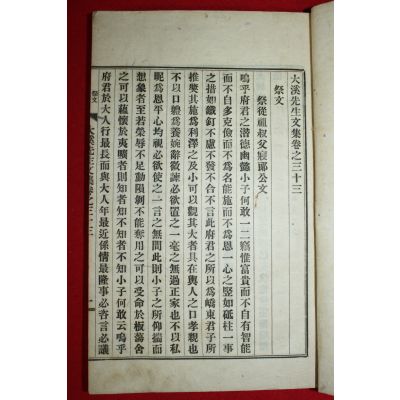 大溪先生文集卷之三十三
祭文
祭從祖叔父寢郎公文
嗚乎府君之潛德幽懿小子何敢一二窺惟富貴而不自有智能
而不自多克儉而不爲名能施而不爲恩一心之堅如砥柱一事
之措如鐵釘不慮不發不合不言此府君之所以爲嶠東君子所
推奬其施爲利澤之及小可以觀其大者具在輿人之口孝親也
不以口軆爲養婉辭徵諫必欲置之一毫之無過正家也不以私
昵爲恩平心均視必欲使之一言之無間此則小子之所仰揣而
想象者至若榮辱不足動隕剝不能奪用之可以受命於板蕩舍
之可以蘊懷於夷曠者則知者知不知者不知小子何敢云嗚乎
府君於大人行最長而與大人年最近係情最隆事必咨言必議
祭文
大溪先生文集卷之三十三
一